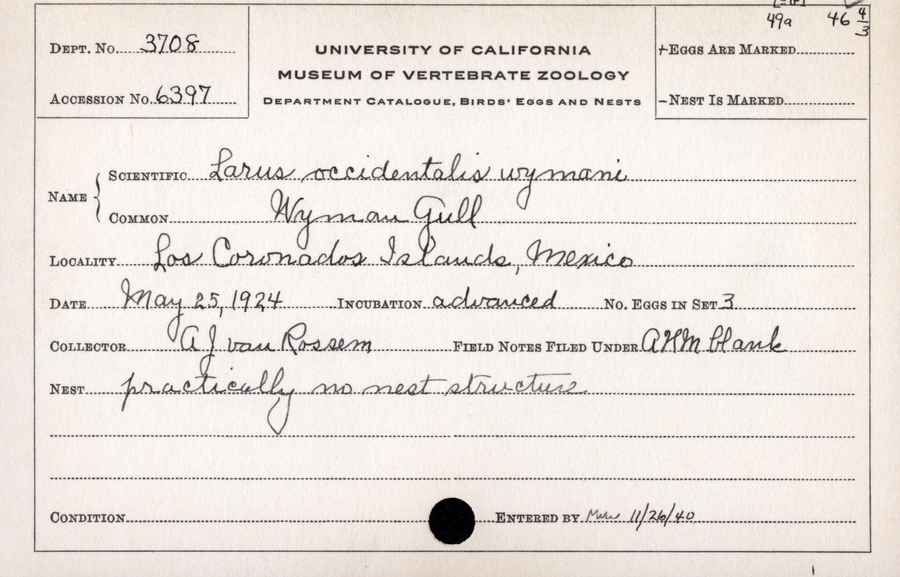 49a 46 4/3
DEPT. No. 3708
UNIVERSITY OF CALIFORNIA
+EGGS ARE MARKED
MUSEUM OF VERTEBRATE ZOOLOGY
ACCESSION No. 6397
DEPARTMENT CATALOGUE, BIRDS' EGGS AND NESTS
-NEST IS MARKED
NAME
SCIENTIFIC Larus occidentalis wymani
COMMON Wyman Gull
LOCALITY Los Coronados Islands, Mexico
DATE May 25, 1924 INCUBATION advanced No. EGGS IN SET 3
COLLECTOR A J van Rossem FIELD NOTES FILED UNDER AHM blank
NEST practically no nest structure
CONDITION ENTERED BY 11/26/40